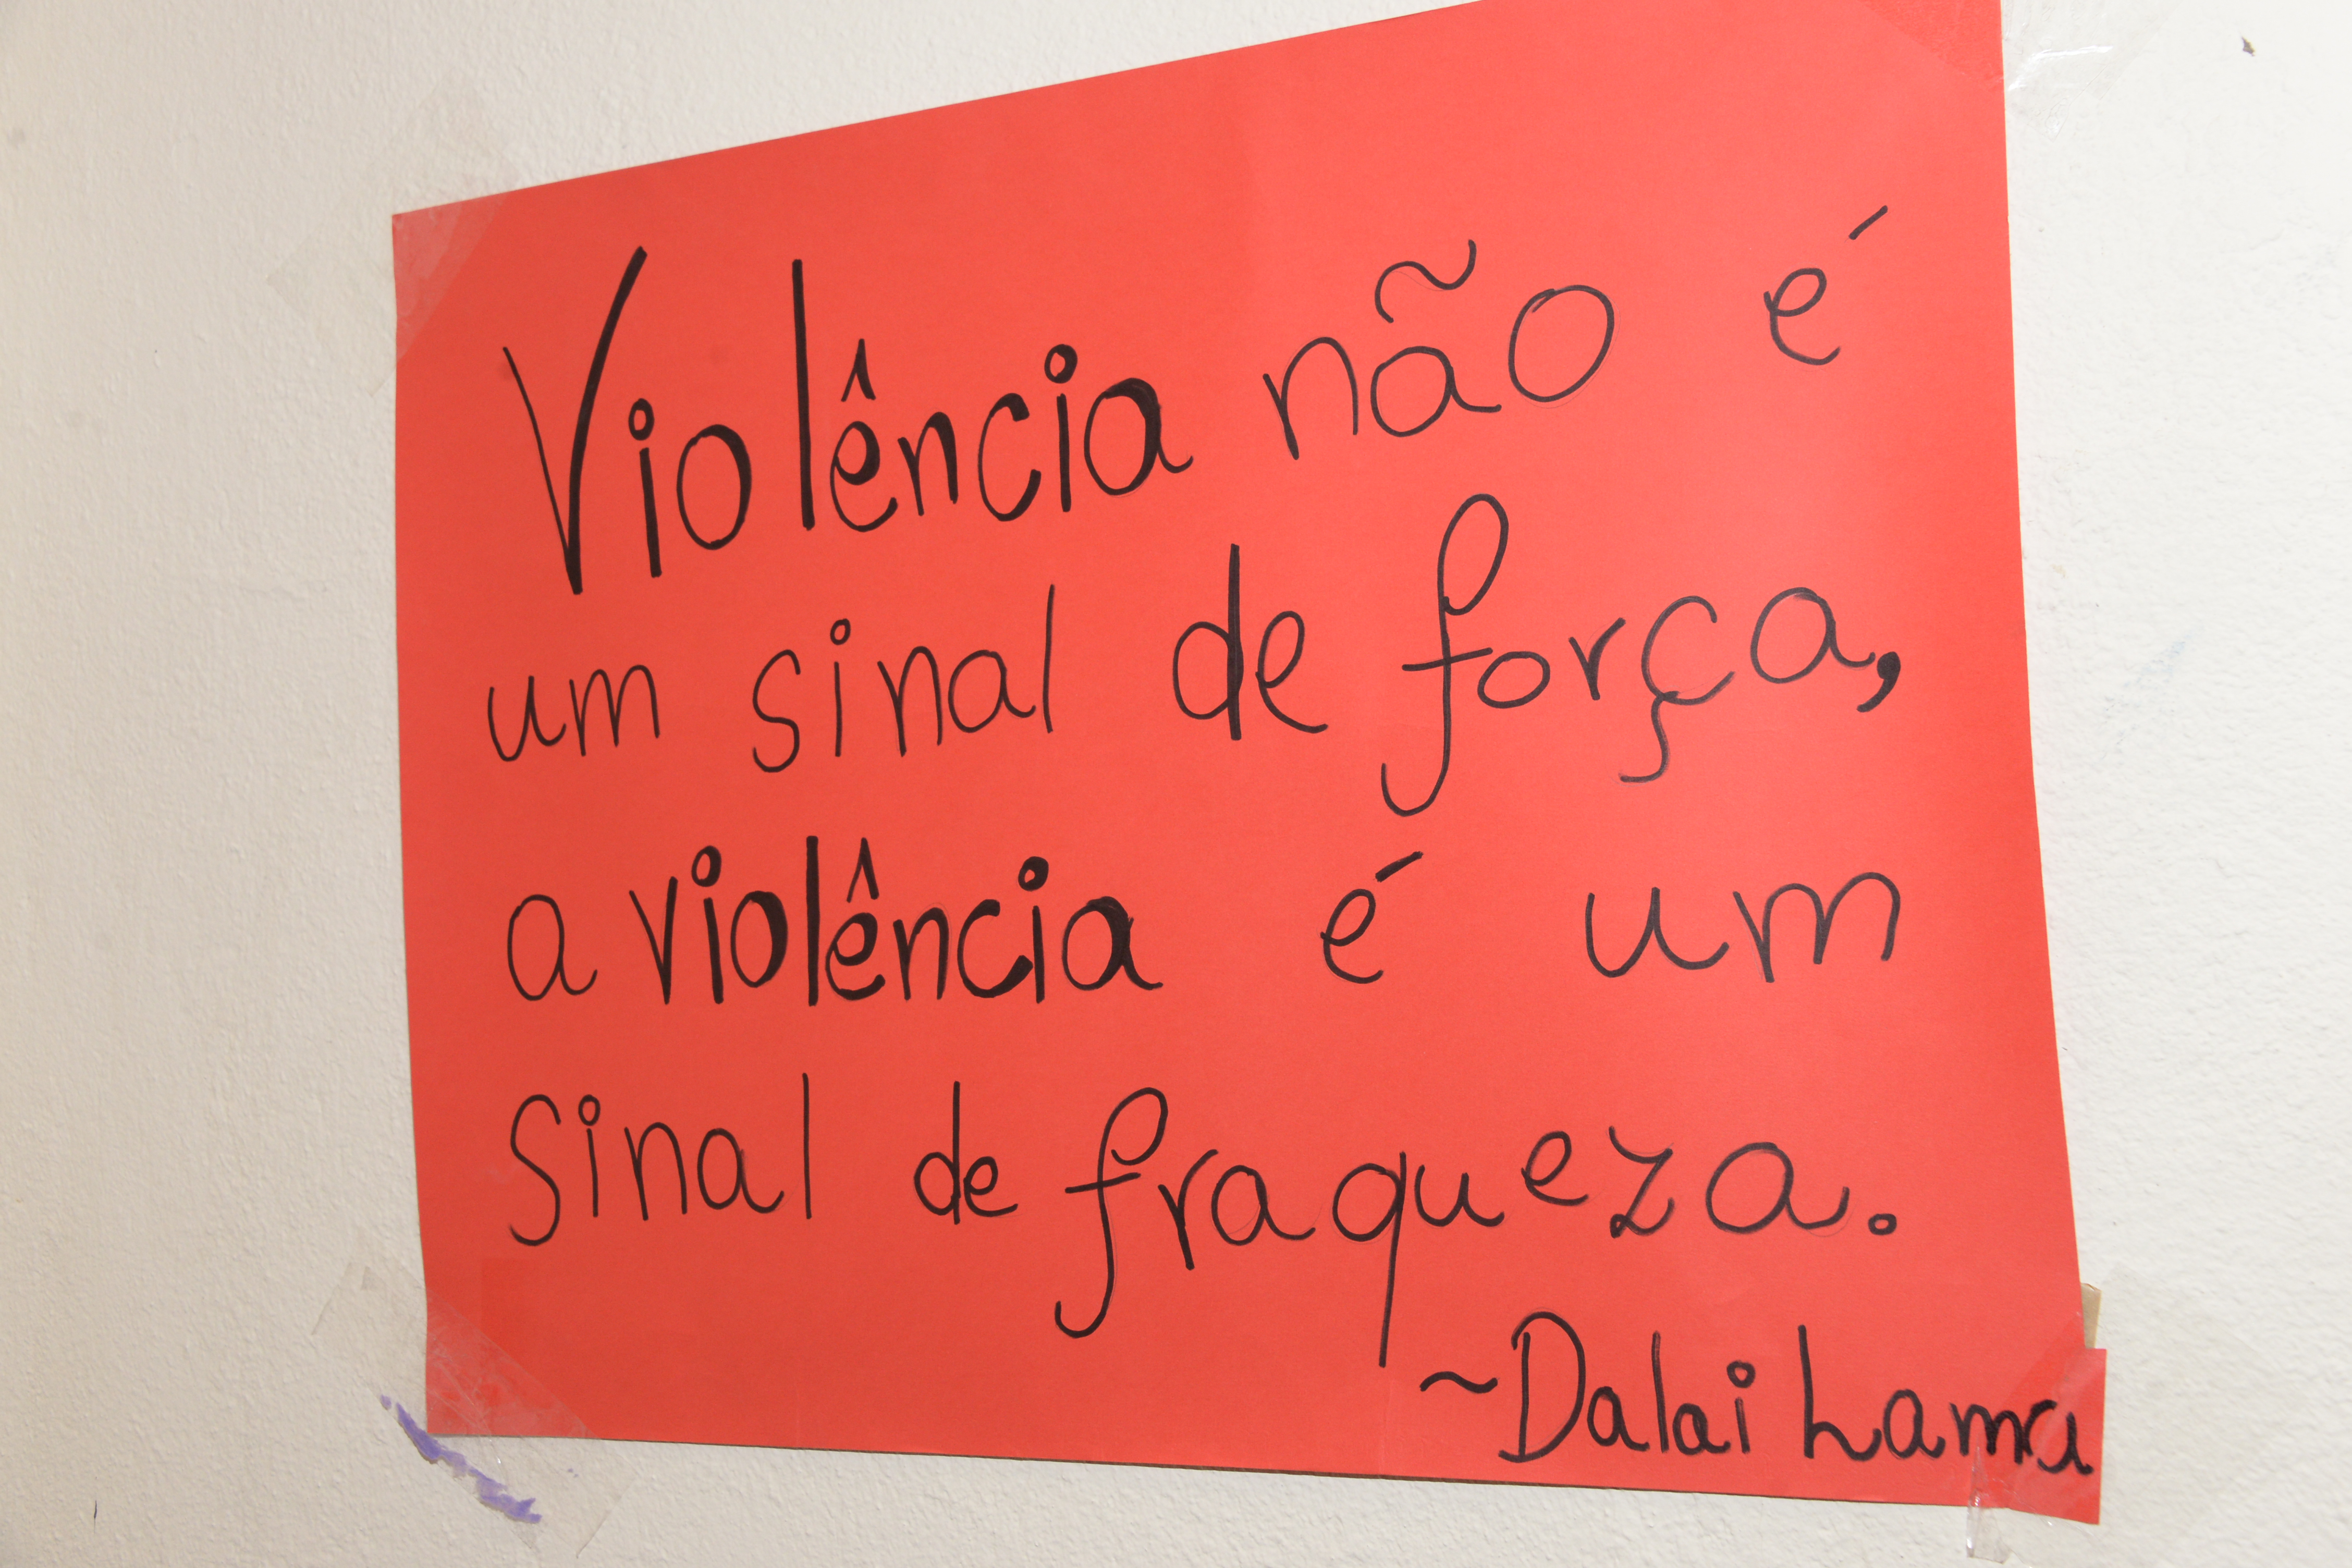 Violência não é
um sinal de força,
a violência é um
sinal de fraqueza.
~Dalai Lama